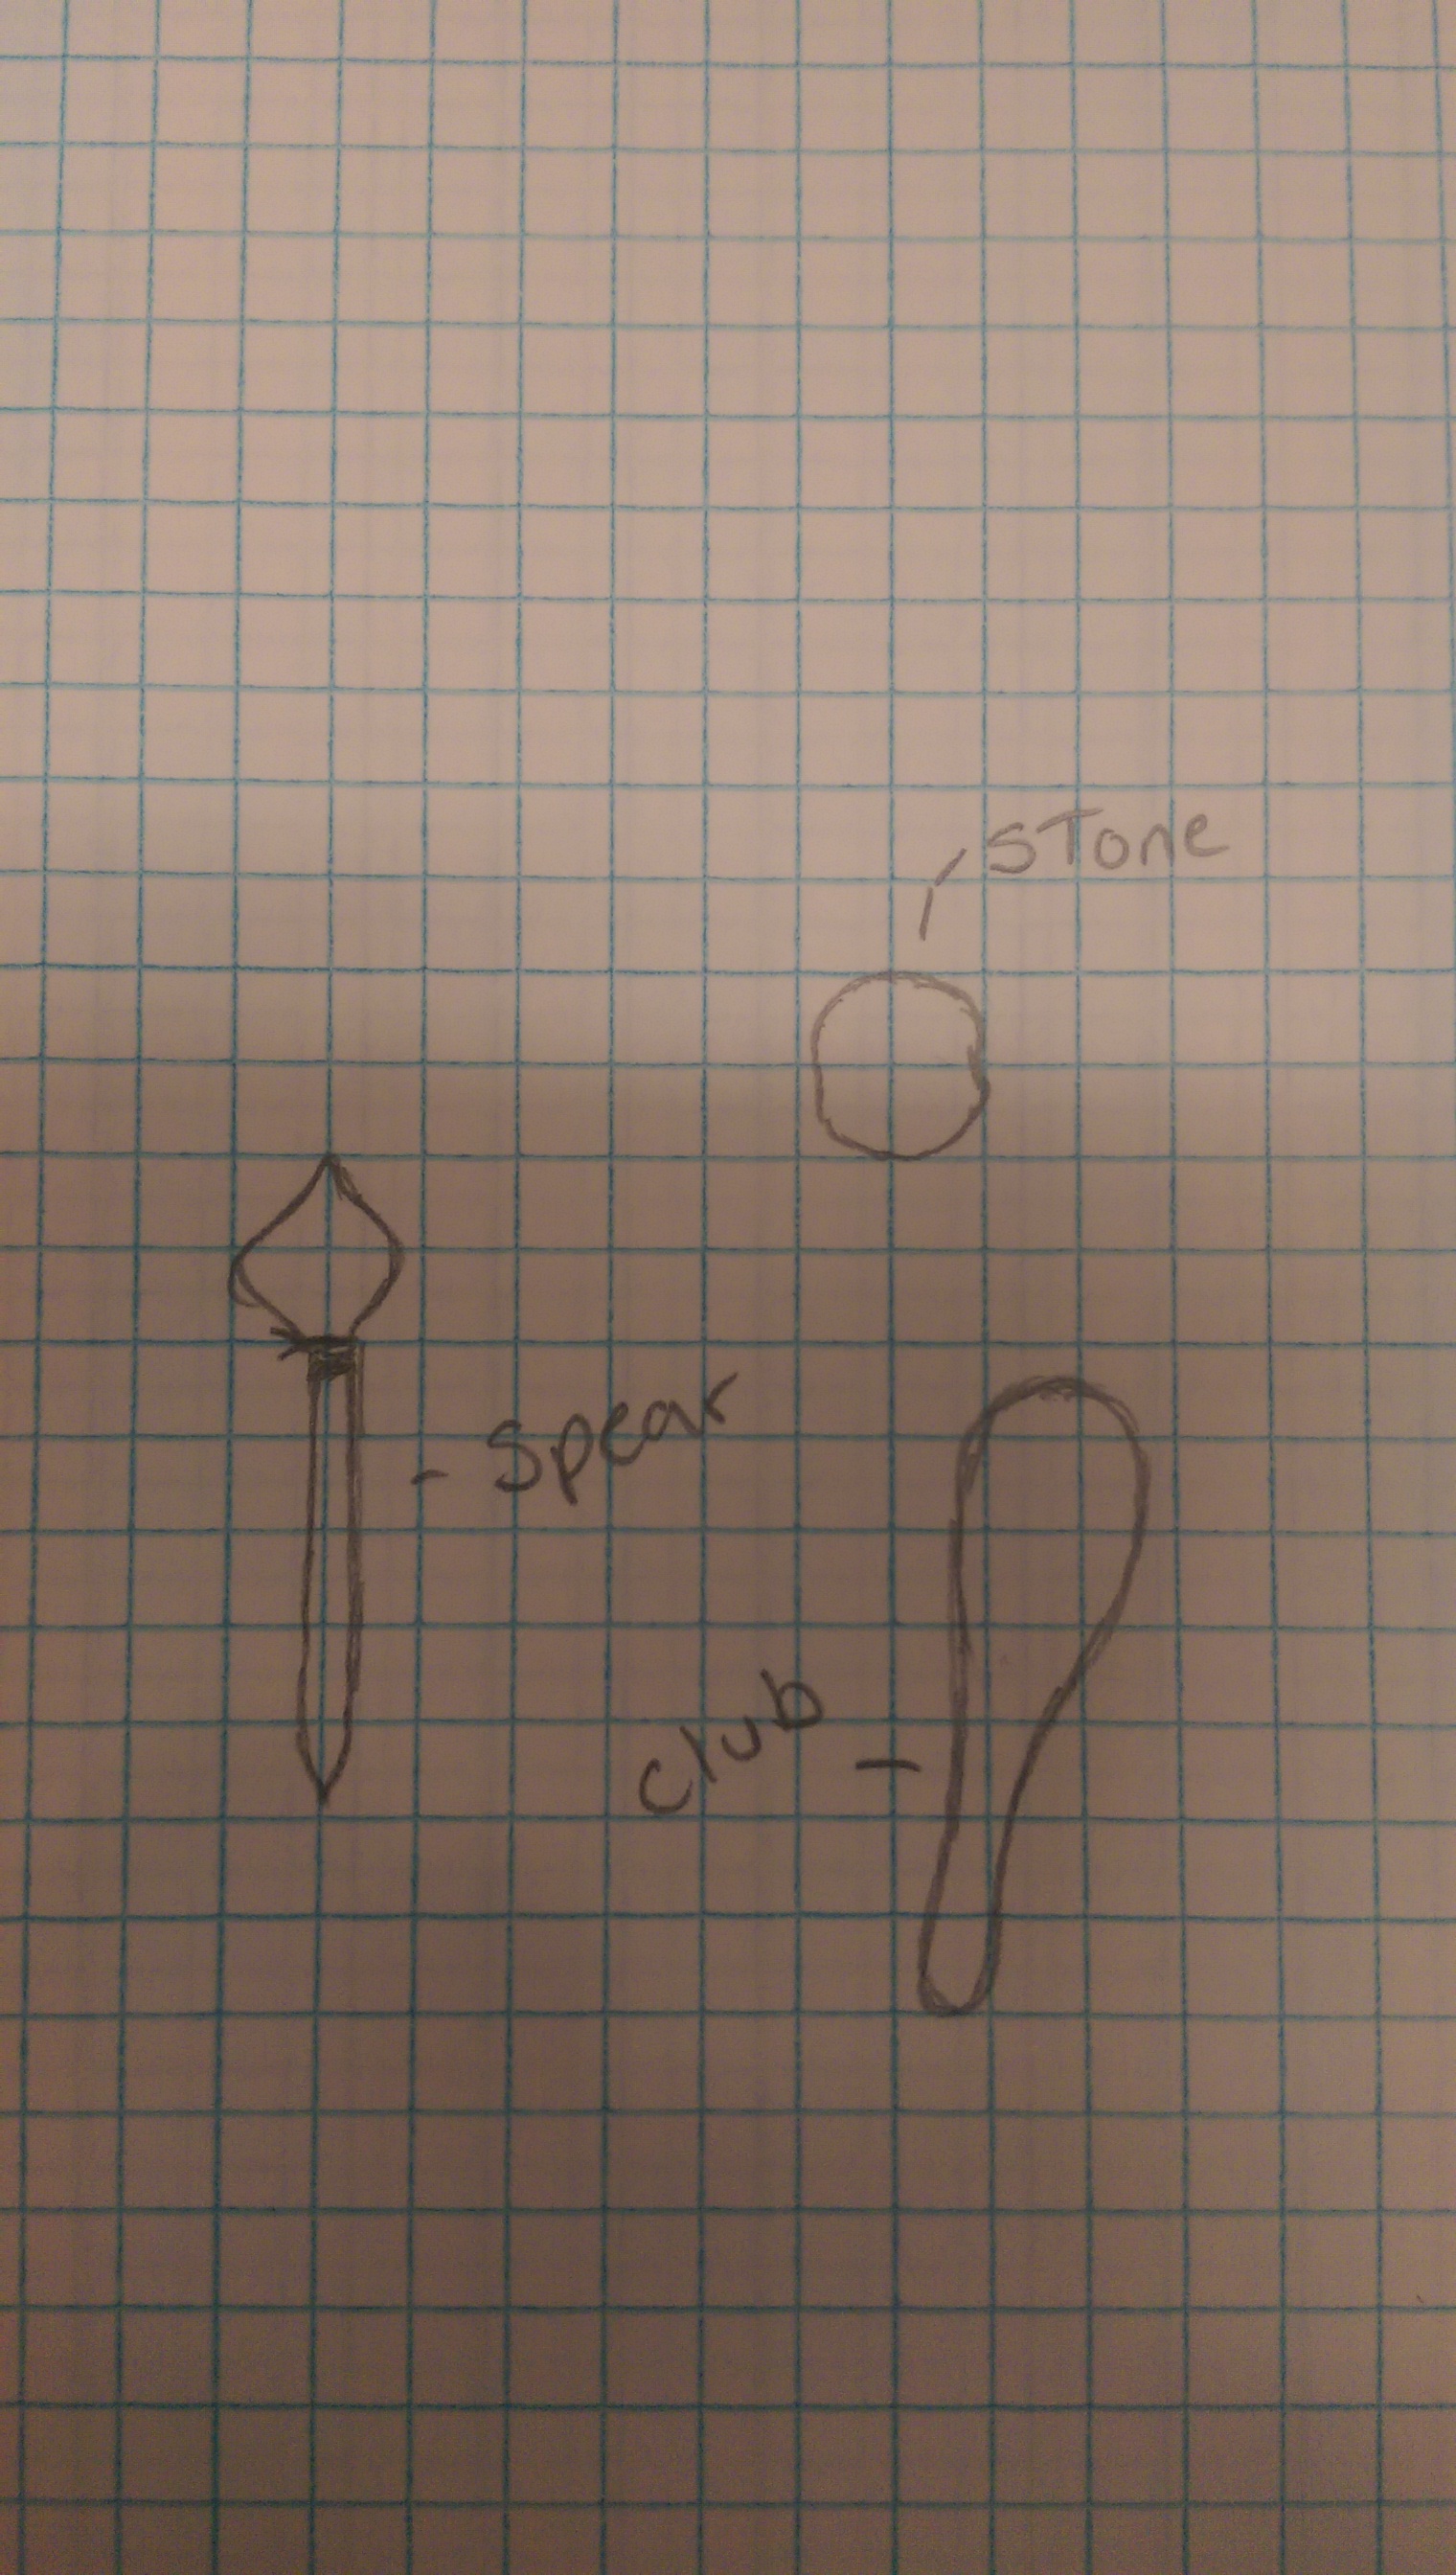 sTone
- Spear
club -